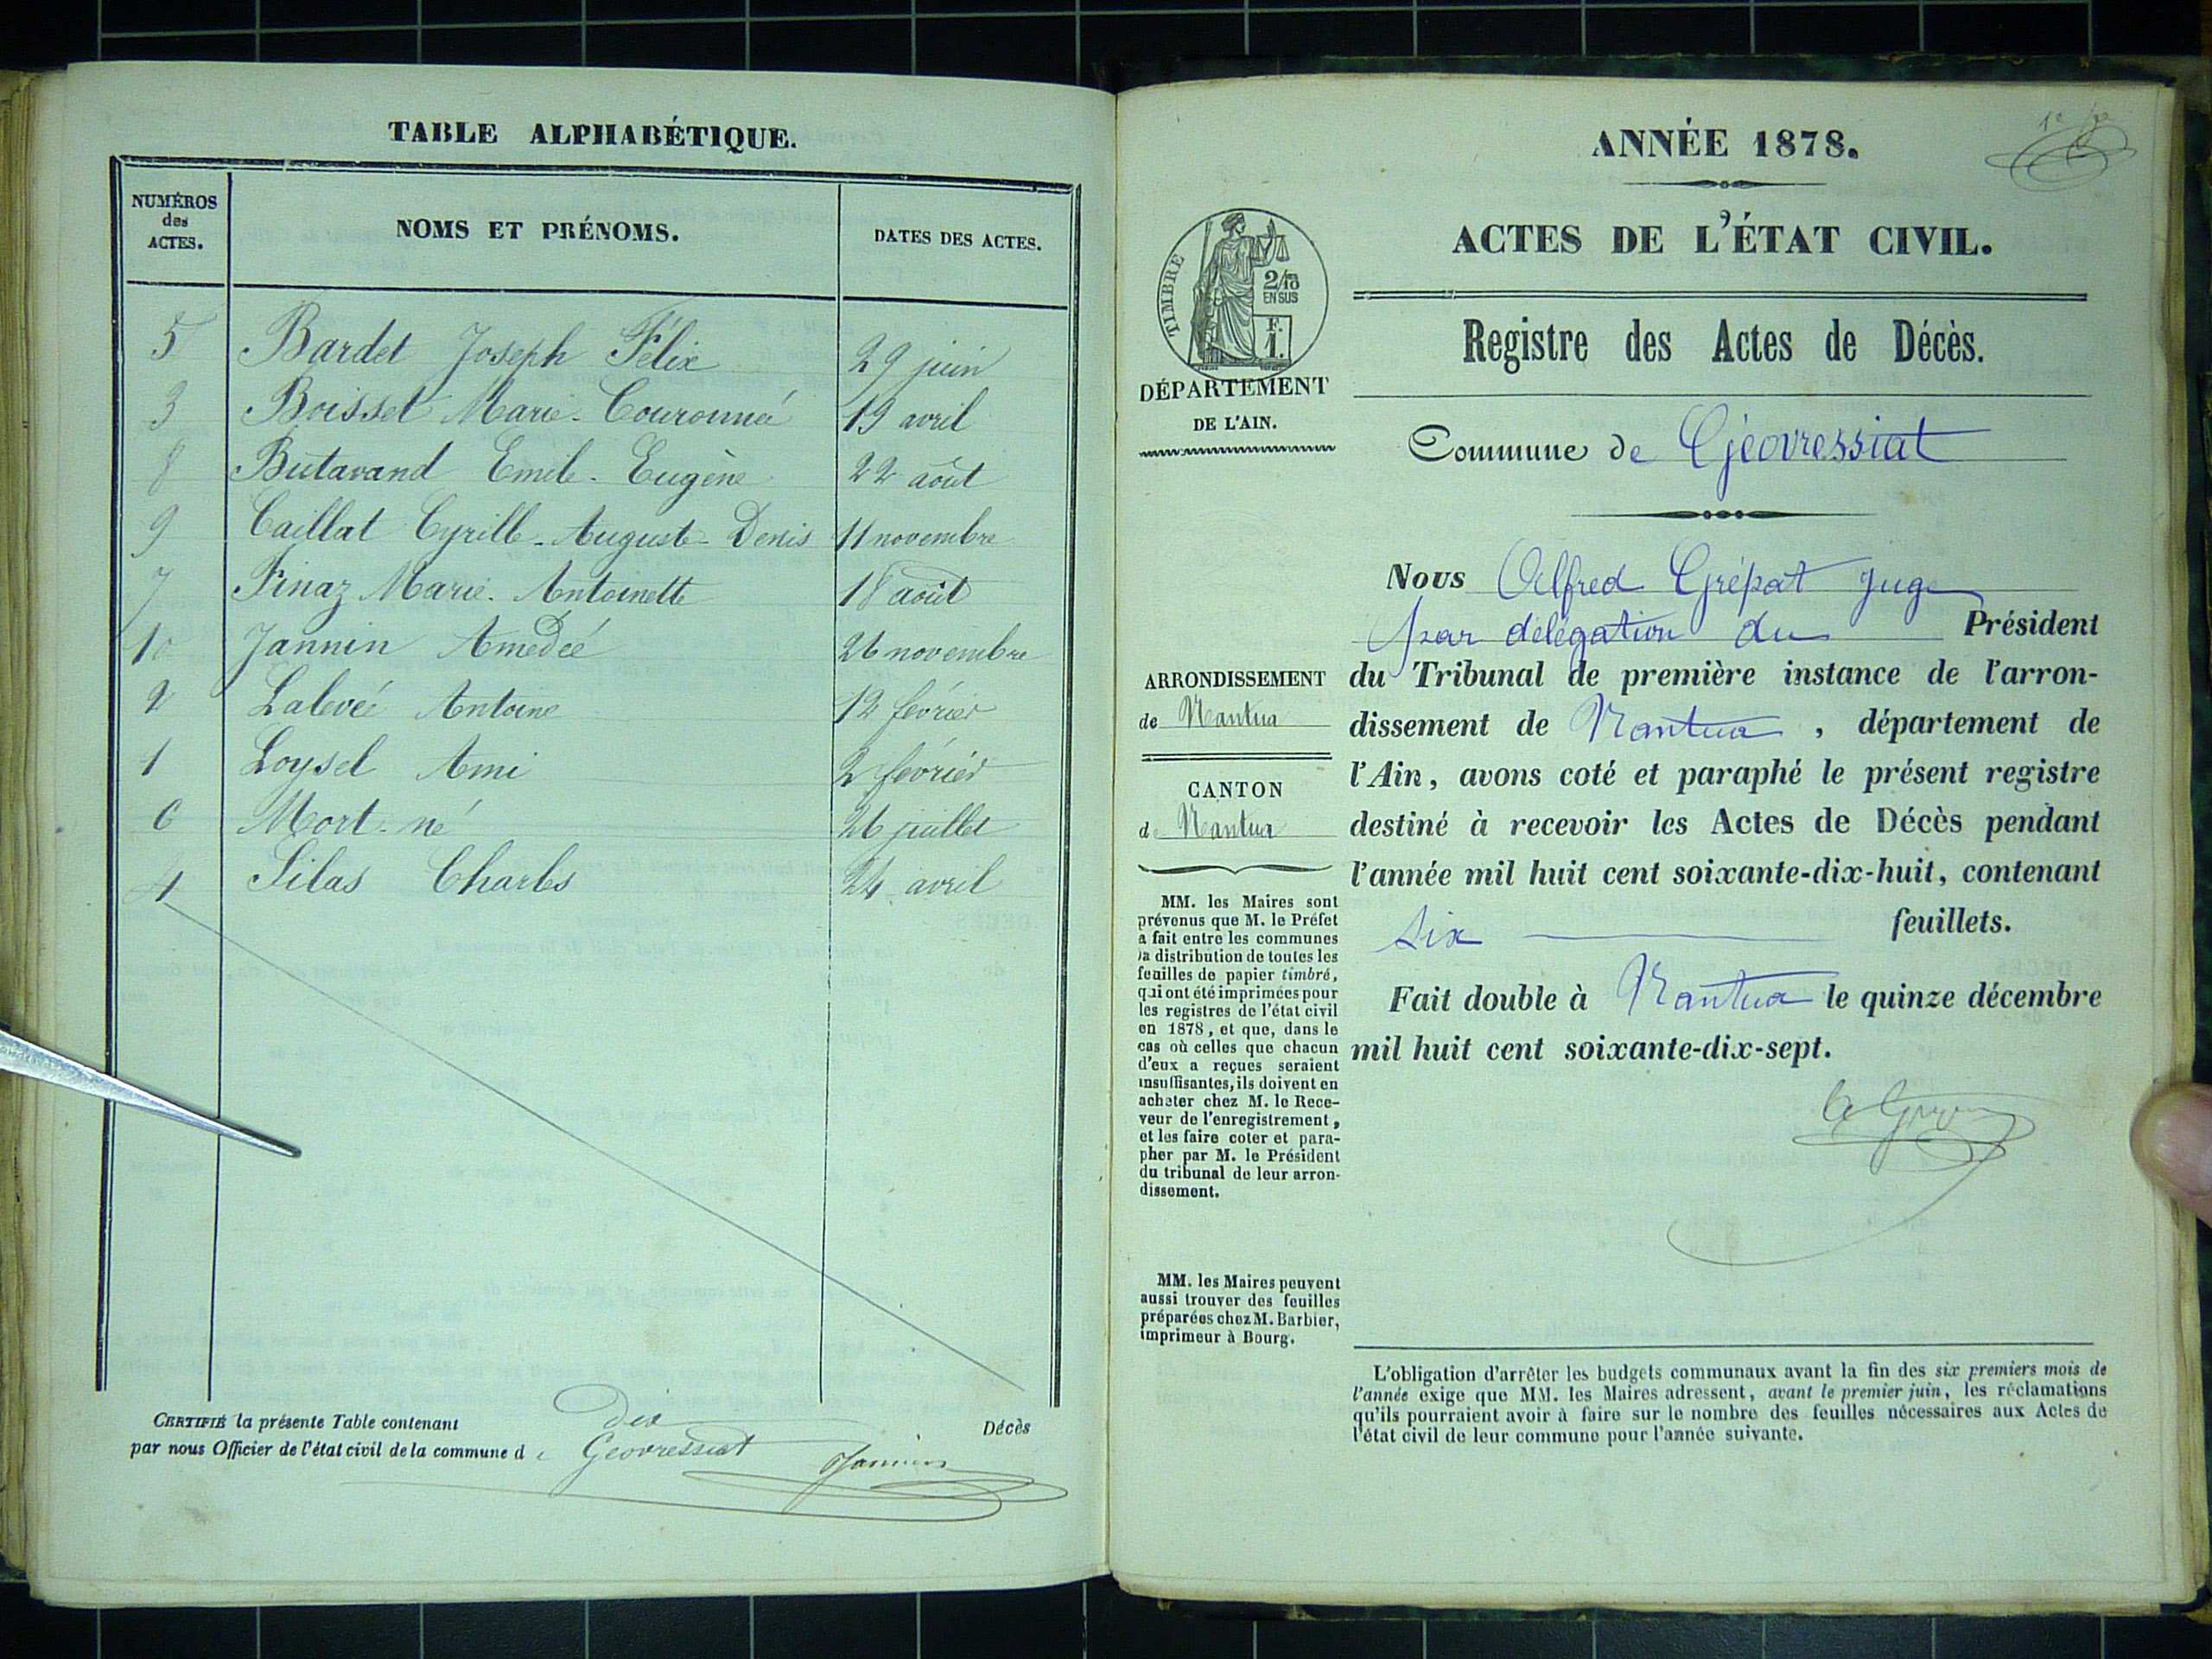 TABLE ALPHABÉTIQUE.
NUMÉROS
des
ACTES.
NOMS ET PRÉNOMS.
DATES DES ACTES.
5 Bardet Joseph Félix 29 juin
3 Boisset Marie-Couronné 19 avril
8 Butavand Emile-Eugène 22 août
9 Caillat Cyrille-Auguste-Denis 11 novembre
7 Finaz Marie-Antoinette 18 août
10 Jannin Amedée 26 novembre
2 Lalevée Antoine 12 février
1 Loysel Ami 2 février
6 Mort-né 26 juillet
4 Silas Charles 24 avril
CERTIFIÉ la présente Table contenant Dix Décès
par nous Officier de l'état civil de la commune de Geovressiat
Jannin
ANNÉE 1878.
ACTES DE L'ÉTAT CIVIL.
Registre des Actes de Décès.
TIMBRE
2/10
EN SUS
F.
1.
DÉPARTEMENT
DE L'AIN.
Commune de Géovressiat
Nous Alfred Grépat juge
par délégation du Président
du Tribunal de première instance de l'arron-
dissement de Nantua, département de
l'Ain, avons coté et paraphé le présent registre
destiné à recevoir les Actes de Décès pendant
l'année mil huit cent soixante-dix-huit, contenant
six feuillets.
Fait double à Nantua le quinze décembre
mil huit cent soixante-dix-sept.
ARRONDISSEMENT
de Nantua
CANTON
de Nantua
MM. les Maires sont
prévenus que M. le Préfet
a fait entre les communes
la distribution de toutes les
feuilles de papier timbré,
qui ont été imprimées pour
les registres de l'état civil
en 1878, et que, dans le
cas où celles que chacun
d'eux a reçues seraient
insuffisantes, ils doivent en
acheter chez M. le Rece-
veur de l'enregistrement,
et les faire coter et para-
pher par M. le Président
du tribunal de leur arron-
dissement.
MM. les Maires peuvent
aussi trouver des feuilles
préparées chez M. Barbier,
imprimeur à Bourg.
L'obligation d'arrêter les budgets communaux avant la fin des six premiers mois de
l'année exige que MM. les Maires adressent, avant le premier juin, les réclamations
qu'ils pourraient avoir à faire sur le nombre des feuilles nécessaires aux Actes de
l'état civil de leur commune pour l'année suivante.